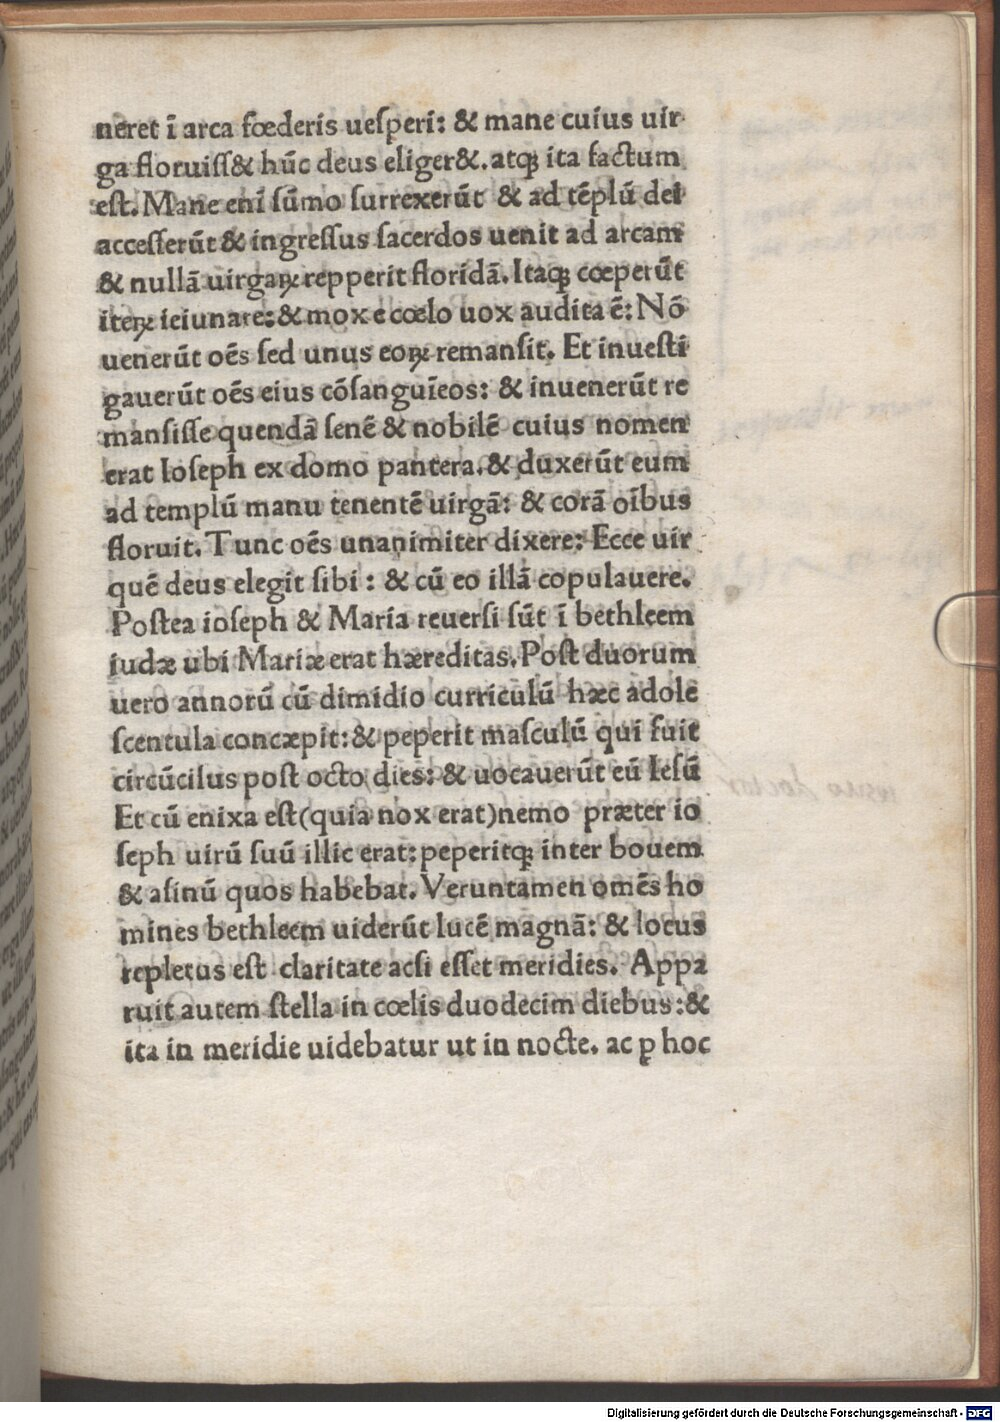 neret ī arca fœderis ueſperi: & mane cuius uir
ga floruiſſ& hūc deus eliger&. atqꝫ ita factum
eſt. Mane eni ſūmo ſurrexerūt & ad tēplū dei
acceſſerūt & ingreſſus ſacerdos uenit ad arcam
& nullā uirgaꝝ repperit floridā. Itaqꝫ cœperūt
iteꝝ ieiunare: & mox e cœlo uox audita ē: Nō
uenerūt oēs ſed unus eoꝝ remanſit. Et inueſti
gauerūt oēs eius cōſanguīeos: & inuenerūt re
manſiſſe quendā ſenē & nobilē cuius nomen
erat Ioſeph ex domo pantera. & duxerūt eum
ad templū manu tenentē uirgā: & corā oībus
floruit. Tunc oēs unanimiter dixere: Ecce uir
quē deus elegit ſibi : & cū eo illā copulauere.
Poſtea ioſeph & Maria reuerſi ſūt ī bethleem
iudæ ubi Mariæ erat hæreditas. Poſt duorum
uero annorū cū dimidio curriculū hæc adole
ſcentula concæpit: & peperit maſculū qui fuit
circūciſus poſt octo dies: & uocauerūt eū Ieſū
Et cū enixa eſt (quia nox erat) nemo præter io
ſeph uirū ſuū illic erat: peperitqꝫ inter bouem
& aſinū quos habebat. Veruntamen omēs ho
mines bethleem uiderūt lucē magnā: & locus
repletus eſt claritate acſi eſſet meridies. Appa
ruit autem ſtella in cœlis duodecim diebus: &
ita in meridie uidebatur ut in nocte. ac ꝑ hoc
Digitalisierung gefördert durch die Deutsche Forschungsgemeinschaft - DFG